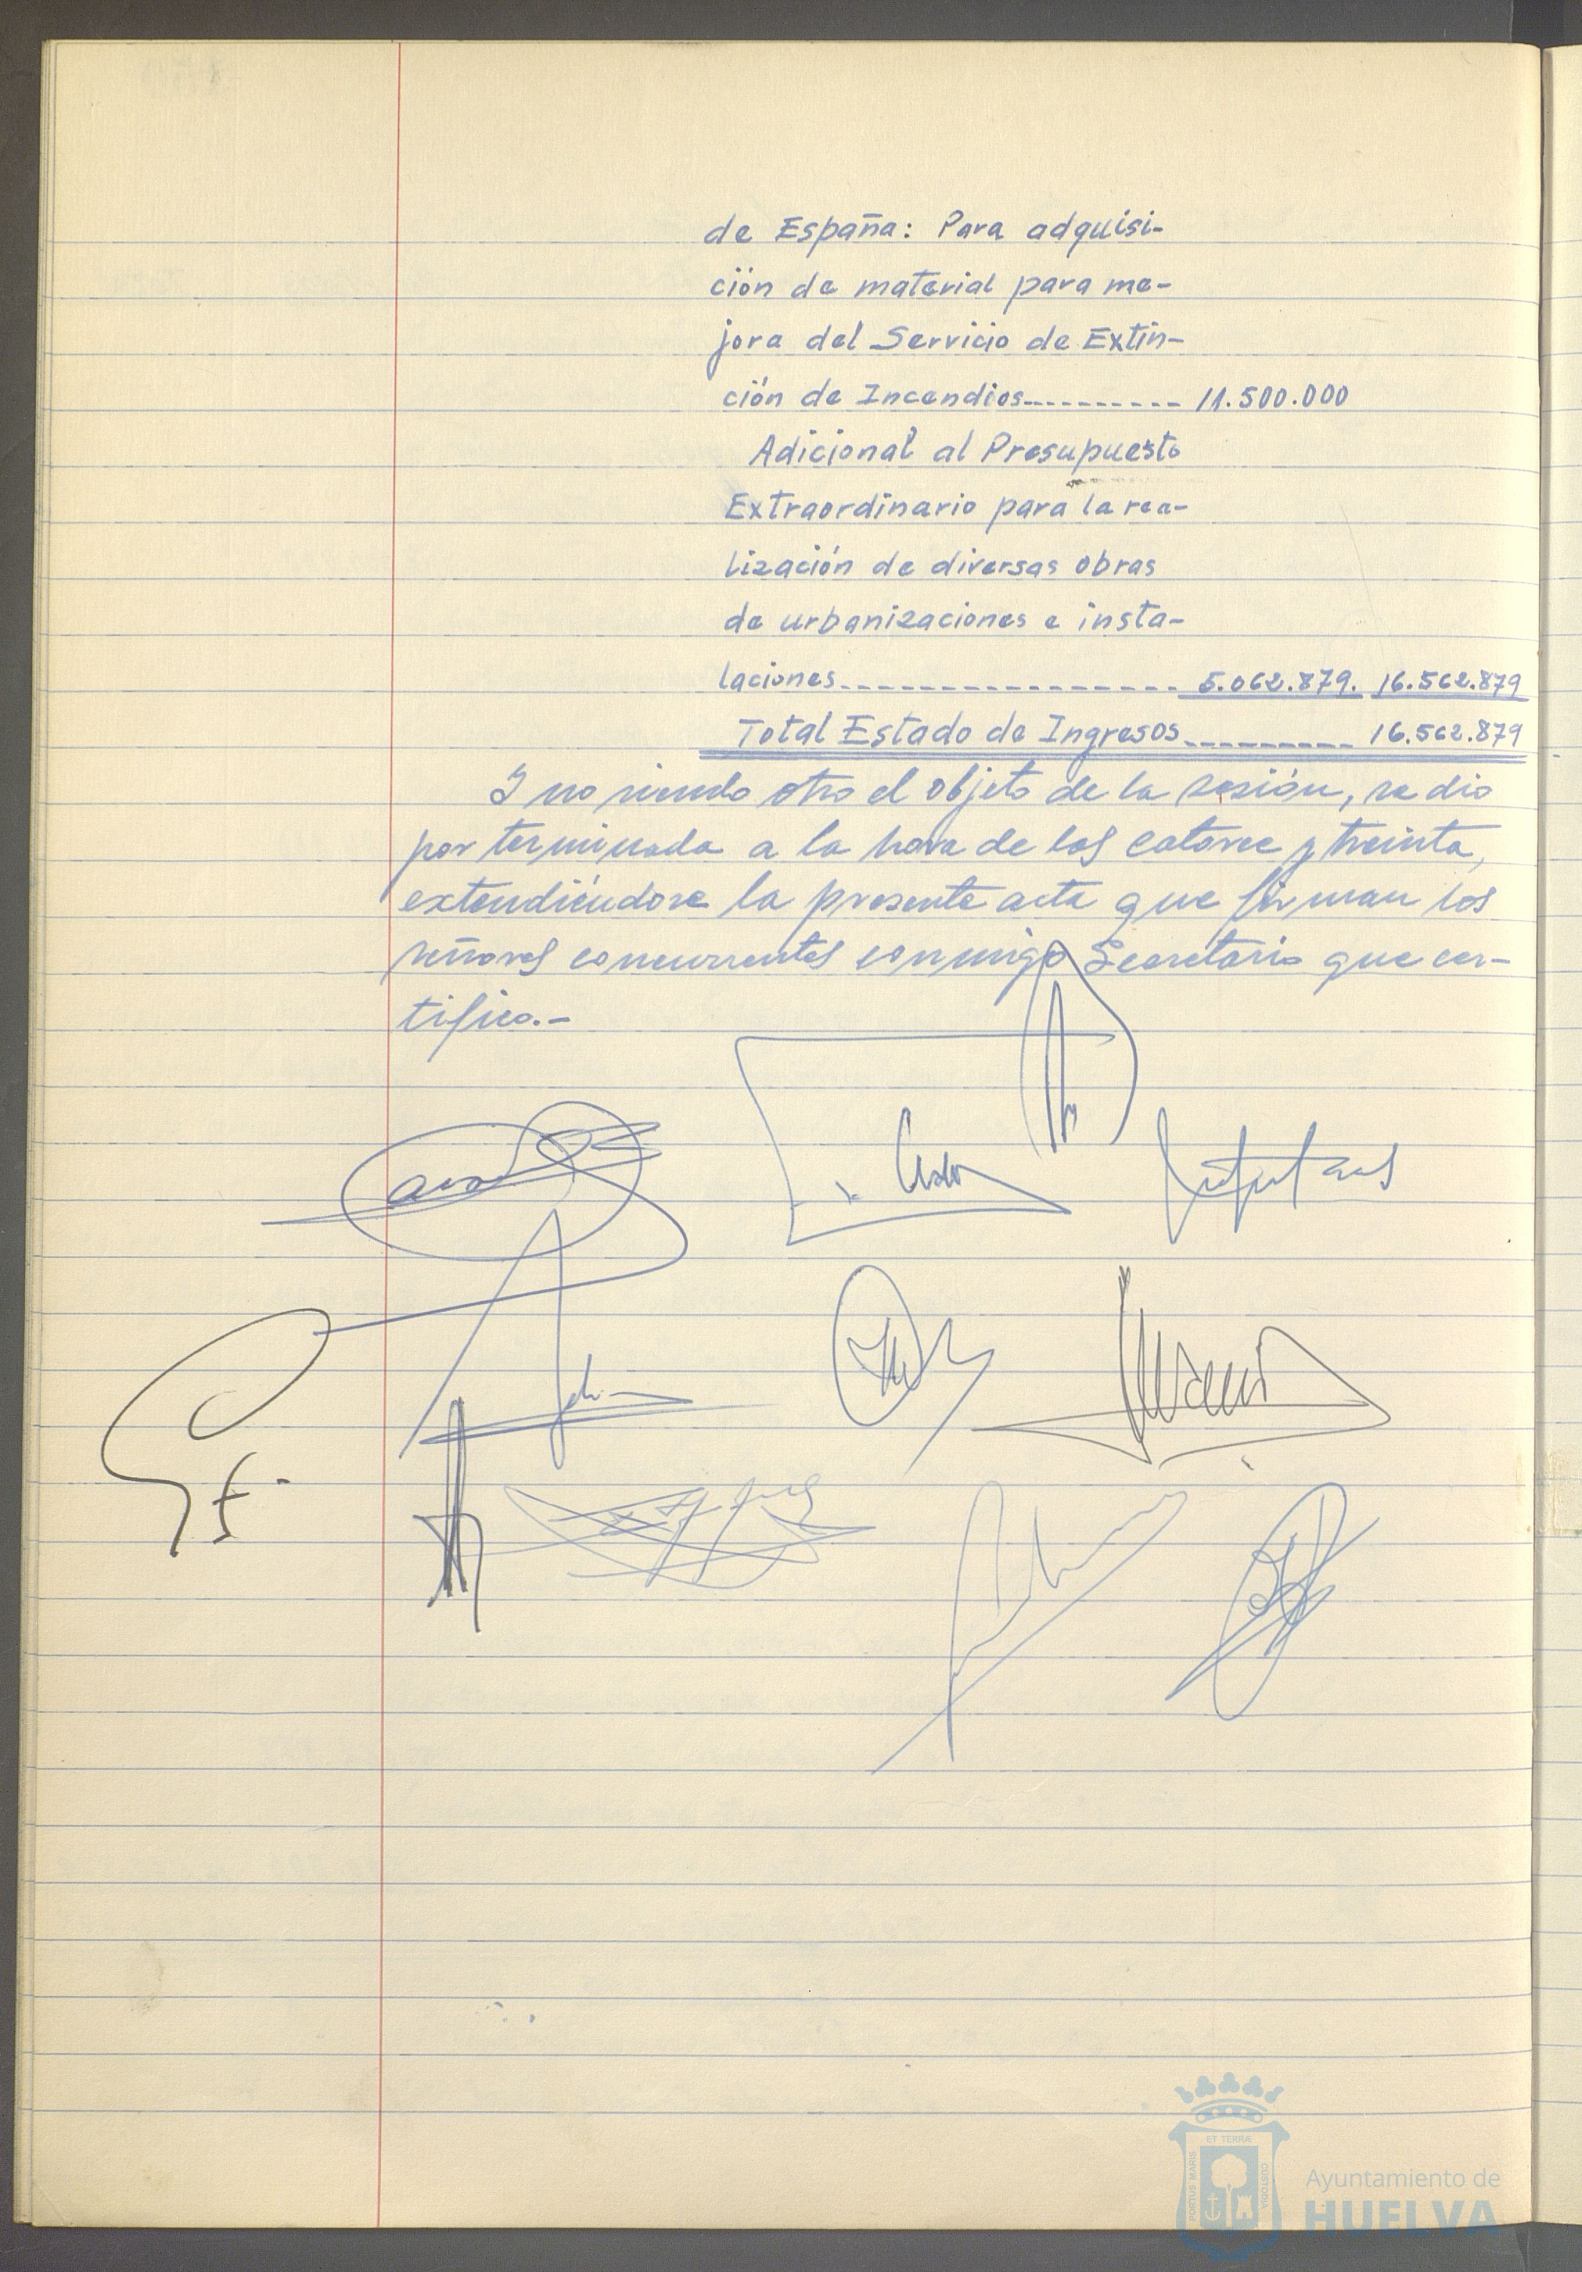 de España: Para adquisi-
ción de material para me-
jora del Servicio de Extin-
ción de Incendios---------- 11.500.000
Adicional al Presupuesto
Extraordinario para la rea-
lización de diversas obras
de urbanizaciones e insta-
laciones----------------- 5.062.879. 16.562.879
Total Estado de Ingresos--------- 16.562.879
Y no siendo otro el objeto de la sesión, se dio
por terminada a la hora de las catorce y treinta,
extendiéndose la presente acta que firman los
señores concurrentes conmigo Secretario que cer-
tifico.-
ET TERRÆ
PORTUS MARIS
CUSTODIA
Ayuntamiento de
HUELVA